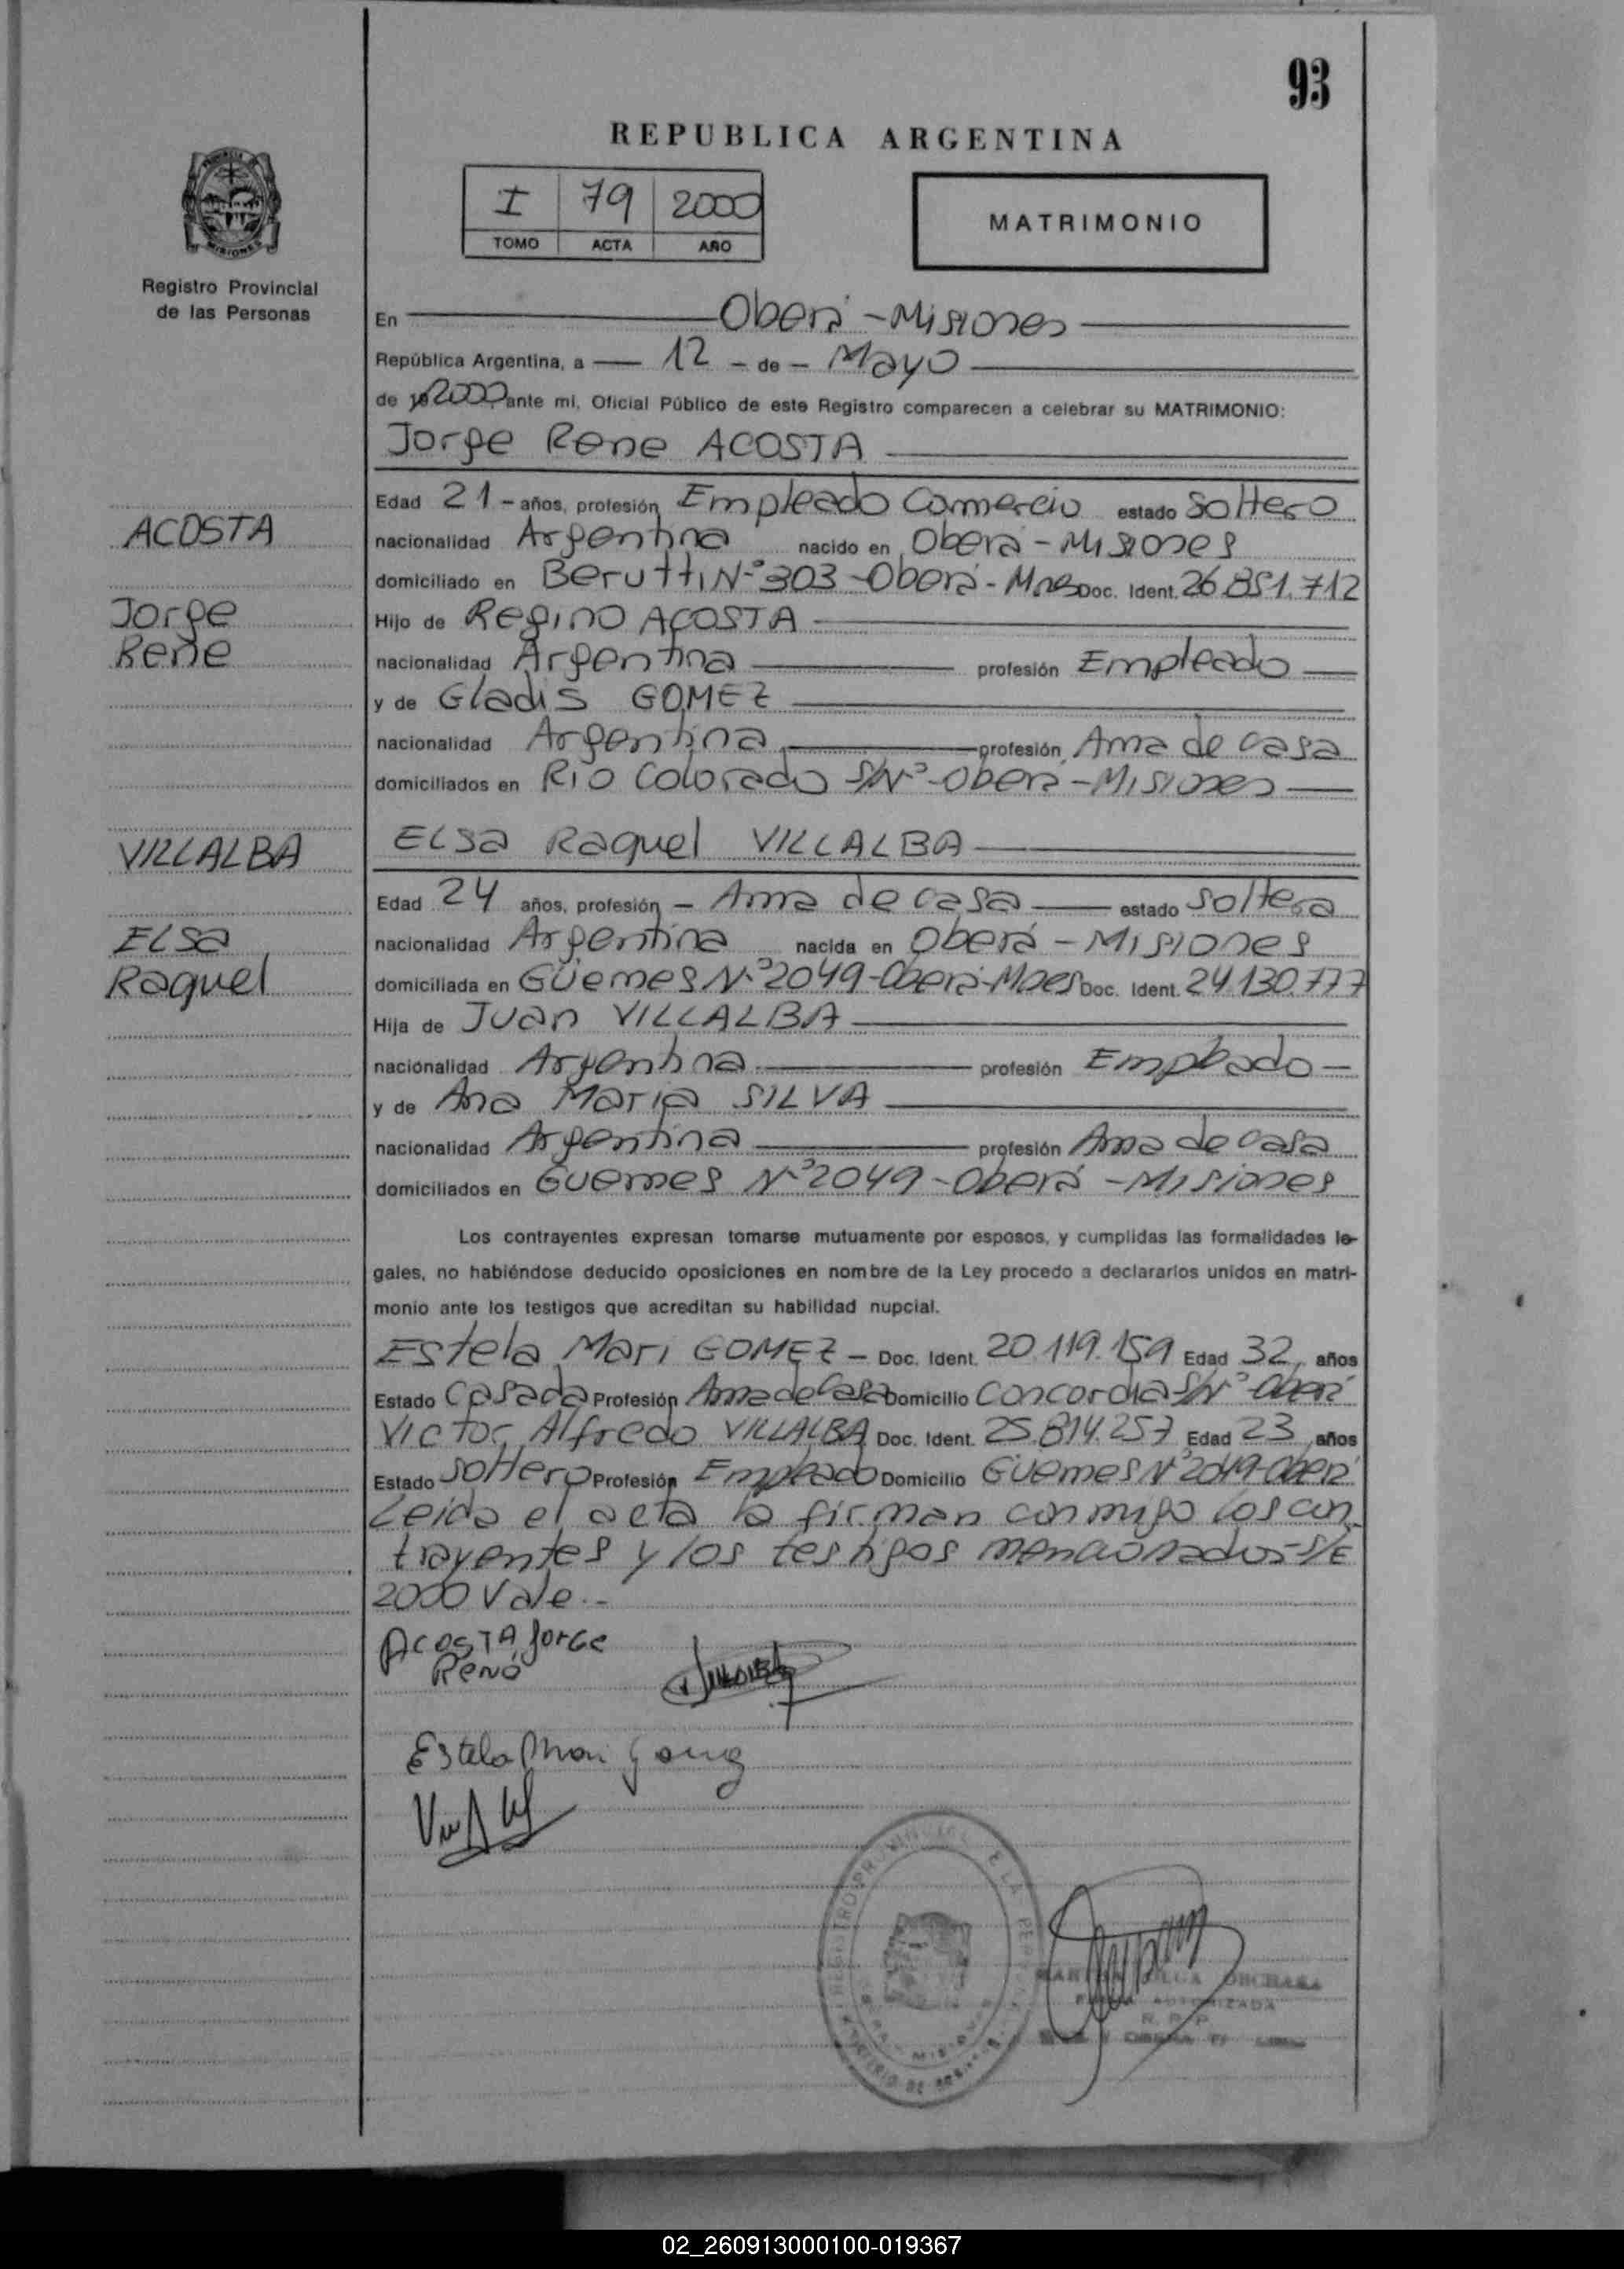 93
REPUBLICA ARGENTINA
I 79 2000
TOMO ACTA AÑO
MATRIMONIO
PROVINCIA DE
MISIONES
Registro Provincial
de las Personas
En Oberá - Misiones
República Argentina, a 12 - de - Mayo
de 19 2000, ante mi, Oficial Público de este Registro comparecen a celebrar su MATRIMONIO:
Jorge Rene ACOSTA
Edad 21 - años, profesión Empleado Comercio estado Soltero
ACOSTA
nacionalidad Argentina nacido en Oberá - Misiones
domiciliado en Berutti N° 303 - Oberá - Mnes Doc. Ident. 26.851.712
Jorge
Hijo de Regino ACOSTA
Rene
nacionalidad Argentina profesión Empleado
y de Gladis GOMEZ
nacionalidad Argentina profesión Ama de casa
domiciliados en Rio Colorado S/N° - Oberá - Misiones
VILLALBA
Elsa Raquel VILLALBA
Edad 24 años, profesión - Ama de casa estado soltera
Elsa
nacionalidad Argentina nacida en Oberá - Misiones
Raquel
domiciliada en Güemes N° 2049 - Oberá - Mnes Doc. Ident. 24.130.777
Hija de Juan VILLALBA
nacionalidad Argentina profesión Empleado
y de Ana Maria SILVA
nacionalidad Argentina profesión Ama de casa
domiciliados en Guemes N° 2049 - Oberá - Misiones
Los contrayentes expresan tomarse mutuamente por esposos, y cumplidas las formalidades le-
gales, no habiéndose deducido oposiciones en nombre de la Ley procedo a declararlos unidos en matri-
monio ante los testigos que acreditan su habilidad nupcial.
Estela Mari GOMEZ - Doc. Ident. 20.119.159 Edad 32, años
Estado Casada Profesión Ama de Casa Domicilio Concordia S/N° - Oberá
Victor Alfredo VILLALBA Doc. Ident. 25.814.257 Edad 23, años
Estado Soltero Profesión Empleado Domicilio Güemes N° 2049 - Oberá
Leida el acta la firman conmigo los con
trayentes y los testigos mencionados - S/E
2000 Vale.-
ACOSTA Jorge
Rene
Estela Mari Gomez
AUTORIZADA
R. P. P.
02_260913000100-019367